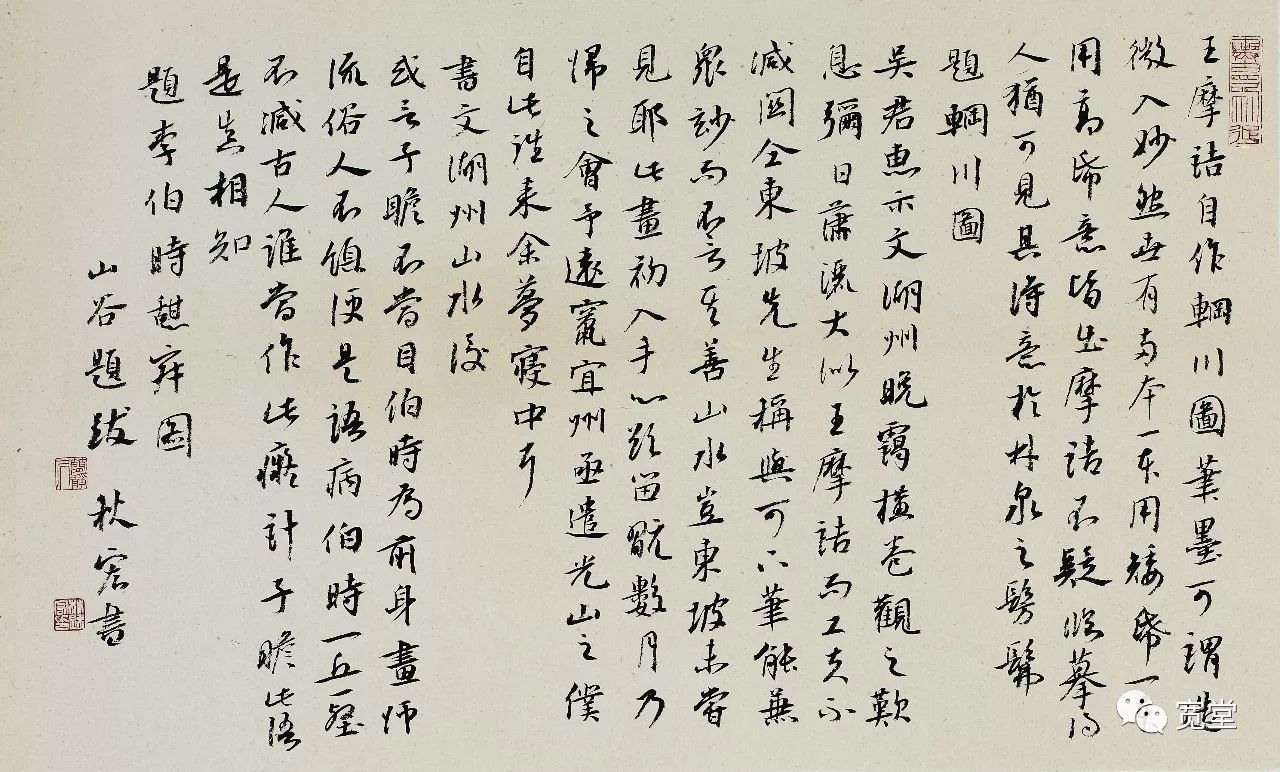 王摩詰自作輞川圖筆墨可謂造
微入妙然世有兩本一本用矮帋一
用高帋意皆出摩詰不疑臨摹得
人猶可見其得意於林泉之髣髴
題輞川圖
吳君惠示文湖州晚靄橫卷觀之歎
息彌日蕭洒大似王摩詰而工夫不
減関仝東坡先生稱與可下筆能兼
衆妙而不言其善山水豈東坡未嘗
見耶此畫初入手心欲留翫數月乃
歸之會予遠竄宜州亟遣光山之僕
自此往来余夢寢中耳
書文湖州山水後
或言子瞻不當目伯時為前身畫師
流俗人不領便是語病伯時一丘一壑
不減古人誰當作此癡計子瞻此語
是真相知
題李伯時憇寂圖
山谷題跋 秋宏書
宽堂